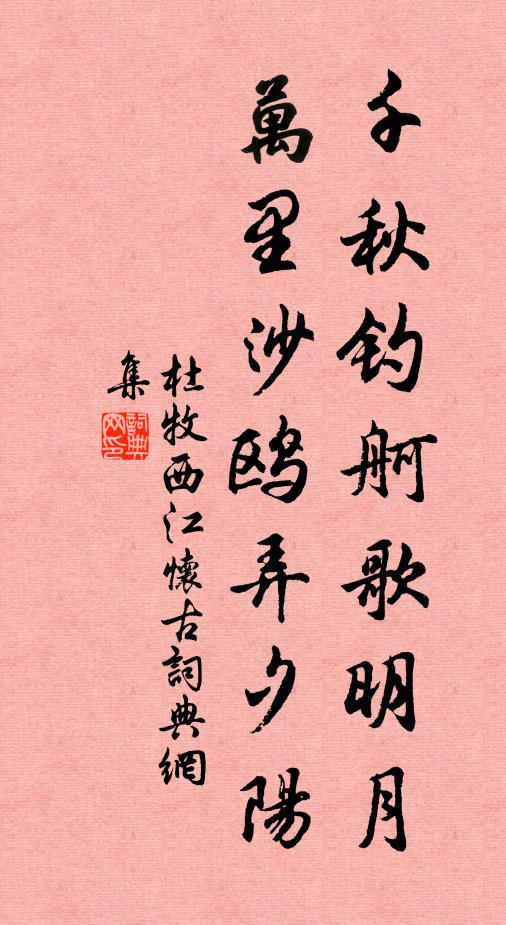 千秋钓舸歌明月
萬里沙鸥弄夕陽
杜牧西江懷古詞典網
集
詞典
网印